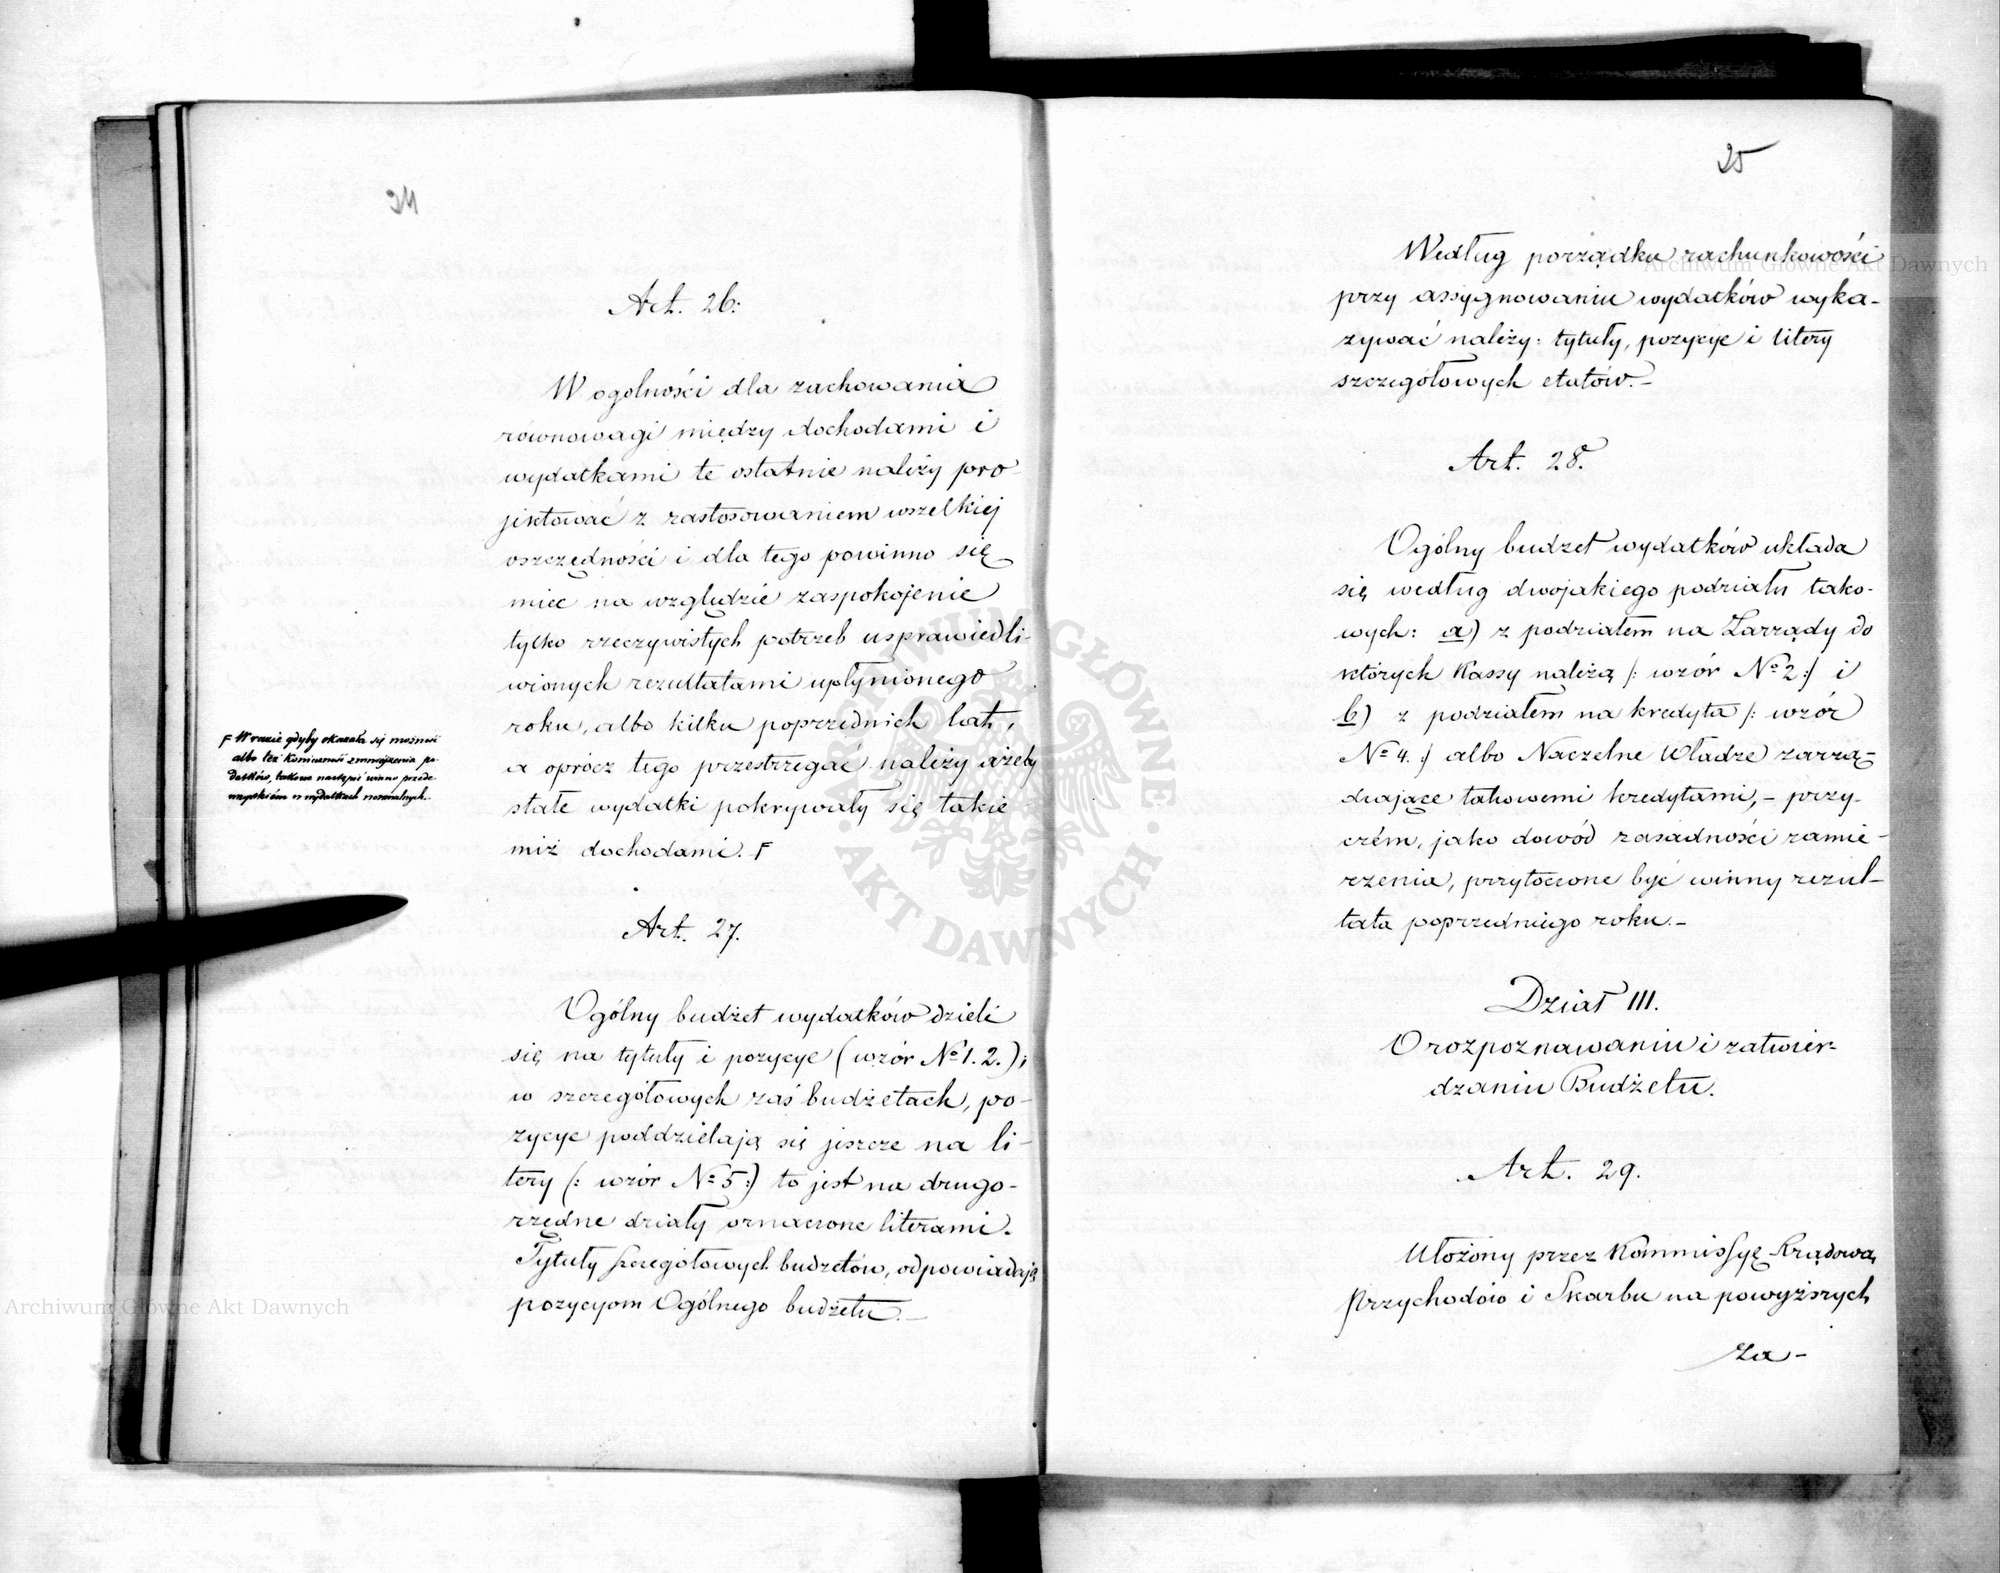 24
Art. 26.
W ogolności dla zachowania
równowagi między dochodami i
wydatkami te ostatnie należy pro-
jektować z zastosowaniem wszelkiej
oszczędności i dla tego powinno się
mieć na względzie zaspokojenie
tylko rzeczywistych potrzeb usprawiedli-
wionych rezultatami upłynionego
roku, albo kilku poprzednich lat,
a oprócz tego przestrzegać należy ażeby
stałe wydatki pokrywały się takie
miż dochodami. F
F W razie gdyby okazała się możność
albo też konieczność zmniejszenia po-
datków, takowe nastąpić winno przede-
wszystkiém w wydatkach normalnych.
Art. 27.
Ogólny budżet wydatków dzieli
się na tytuły i pozycye (wzór № 1. 2.);
w szczegółowych zaś budżetach, po-
zycye poddzielają się jeszcze na li-
tery (: wzór № 5 :) to jest na drugo-
rzędne działy oznaczone literami.
Tytuły szczegółowych budżetów, odpowiadają
pozycyom Ogólnego budżetu. –
25
Według porządku rachunkowości
przy assygnowaniu wydatków wyka-
zywać należy: tytuły, pozycye i litery
szczegółowych etatów. –
Art. 28.
Ogólny budżet wydatków układa
się według dwojakiego podziału tako-
wych: a) z podziałem na Zarządy do
których Kassy należą /: wzór № 2 :/ i
b) z podziałem na kredyta /: wzór
№ 4. :/ albo Naczelne Władze zarzą-
dzające takowemi kredytami, – przy-
czém, jako dowód zasadności zamie-
rzenia, przytoczone być winny rezul-
tata poprzedniego roku. –
Dział III.
O rozpoznawaniu i zatwier-
dzaniu Budżetu.
Art. 29.
Ułożony przez Kommissyę Rządową
Przychodów i Skarbu na powyższych
za –
Archiwum Główne Akt Dawnych
Archiwum Główne Akt Dawnych
ARCHIWUM GŁÓWNE · AKT DAWNYCH ·